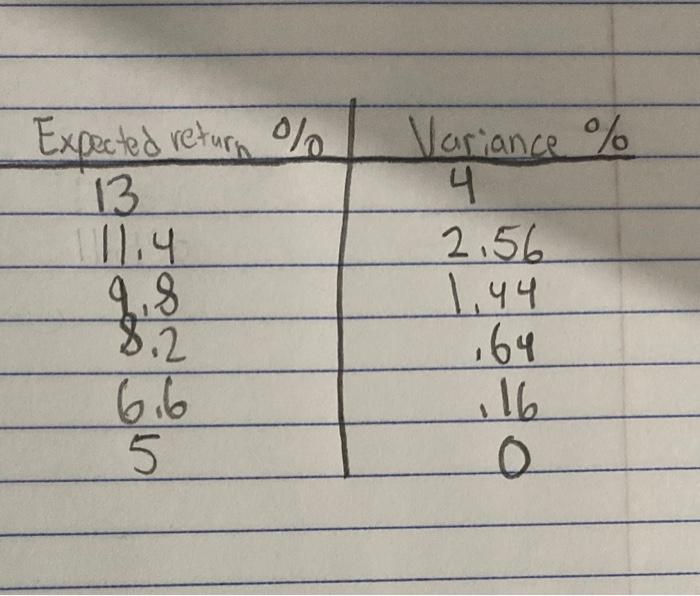 Expected return % Variance %
13 4
11.4 2.56
9.8 1.44
8.2 .64
6.6 .16
5 0